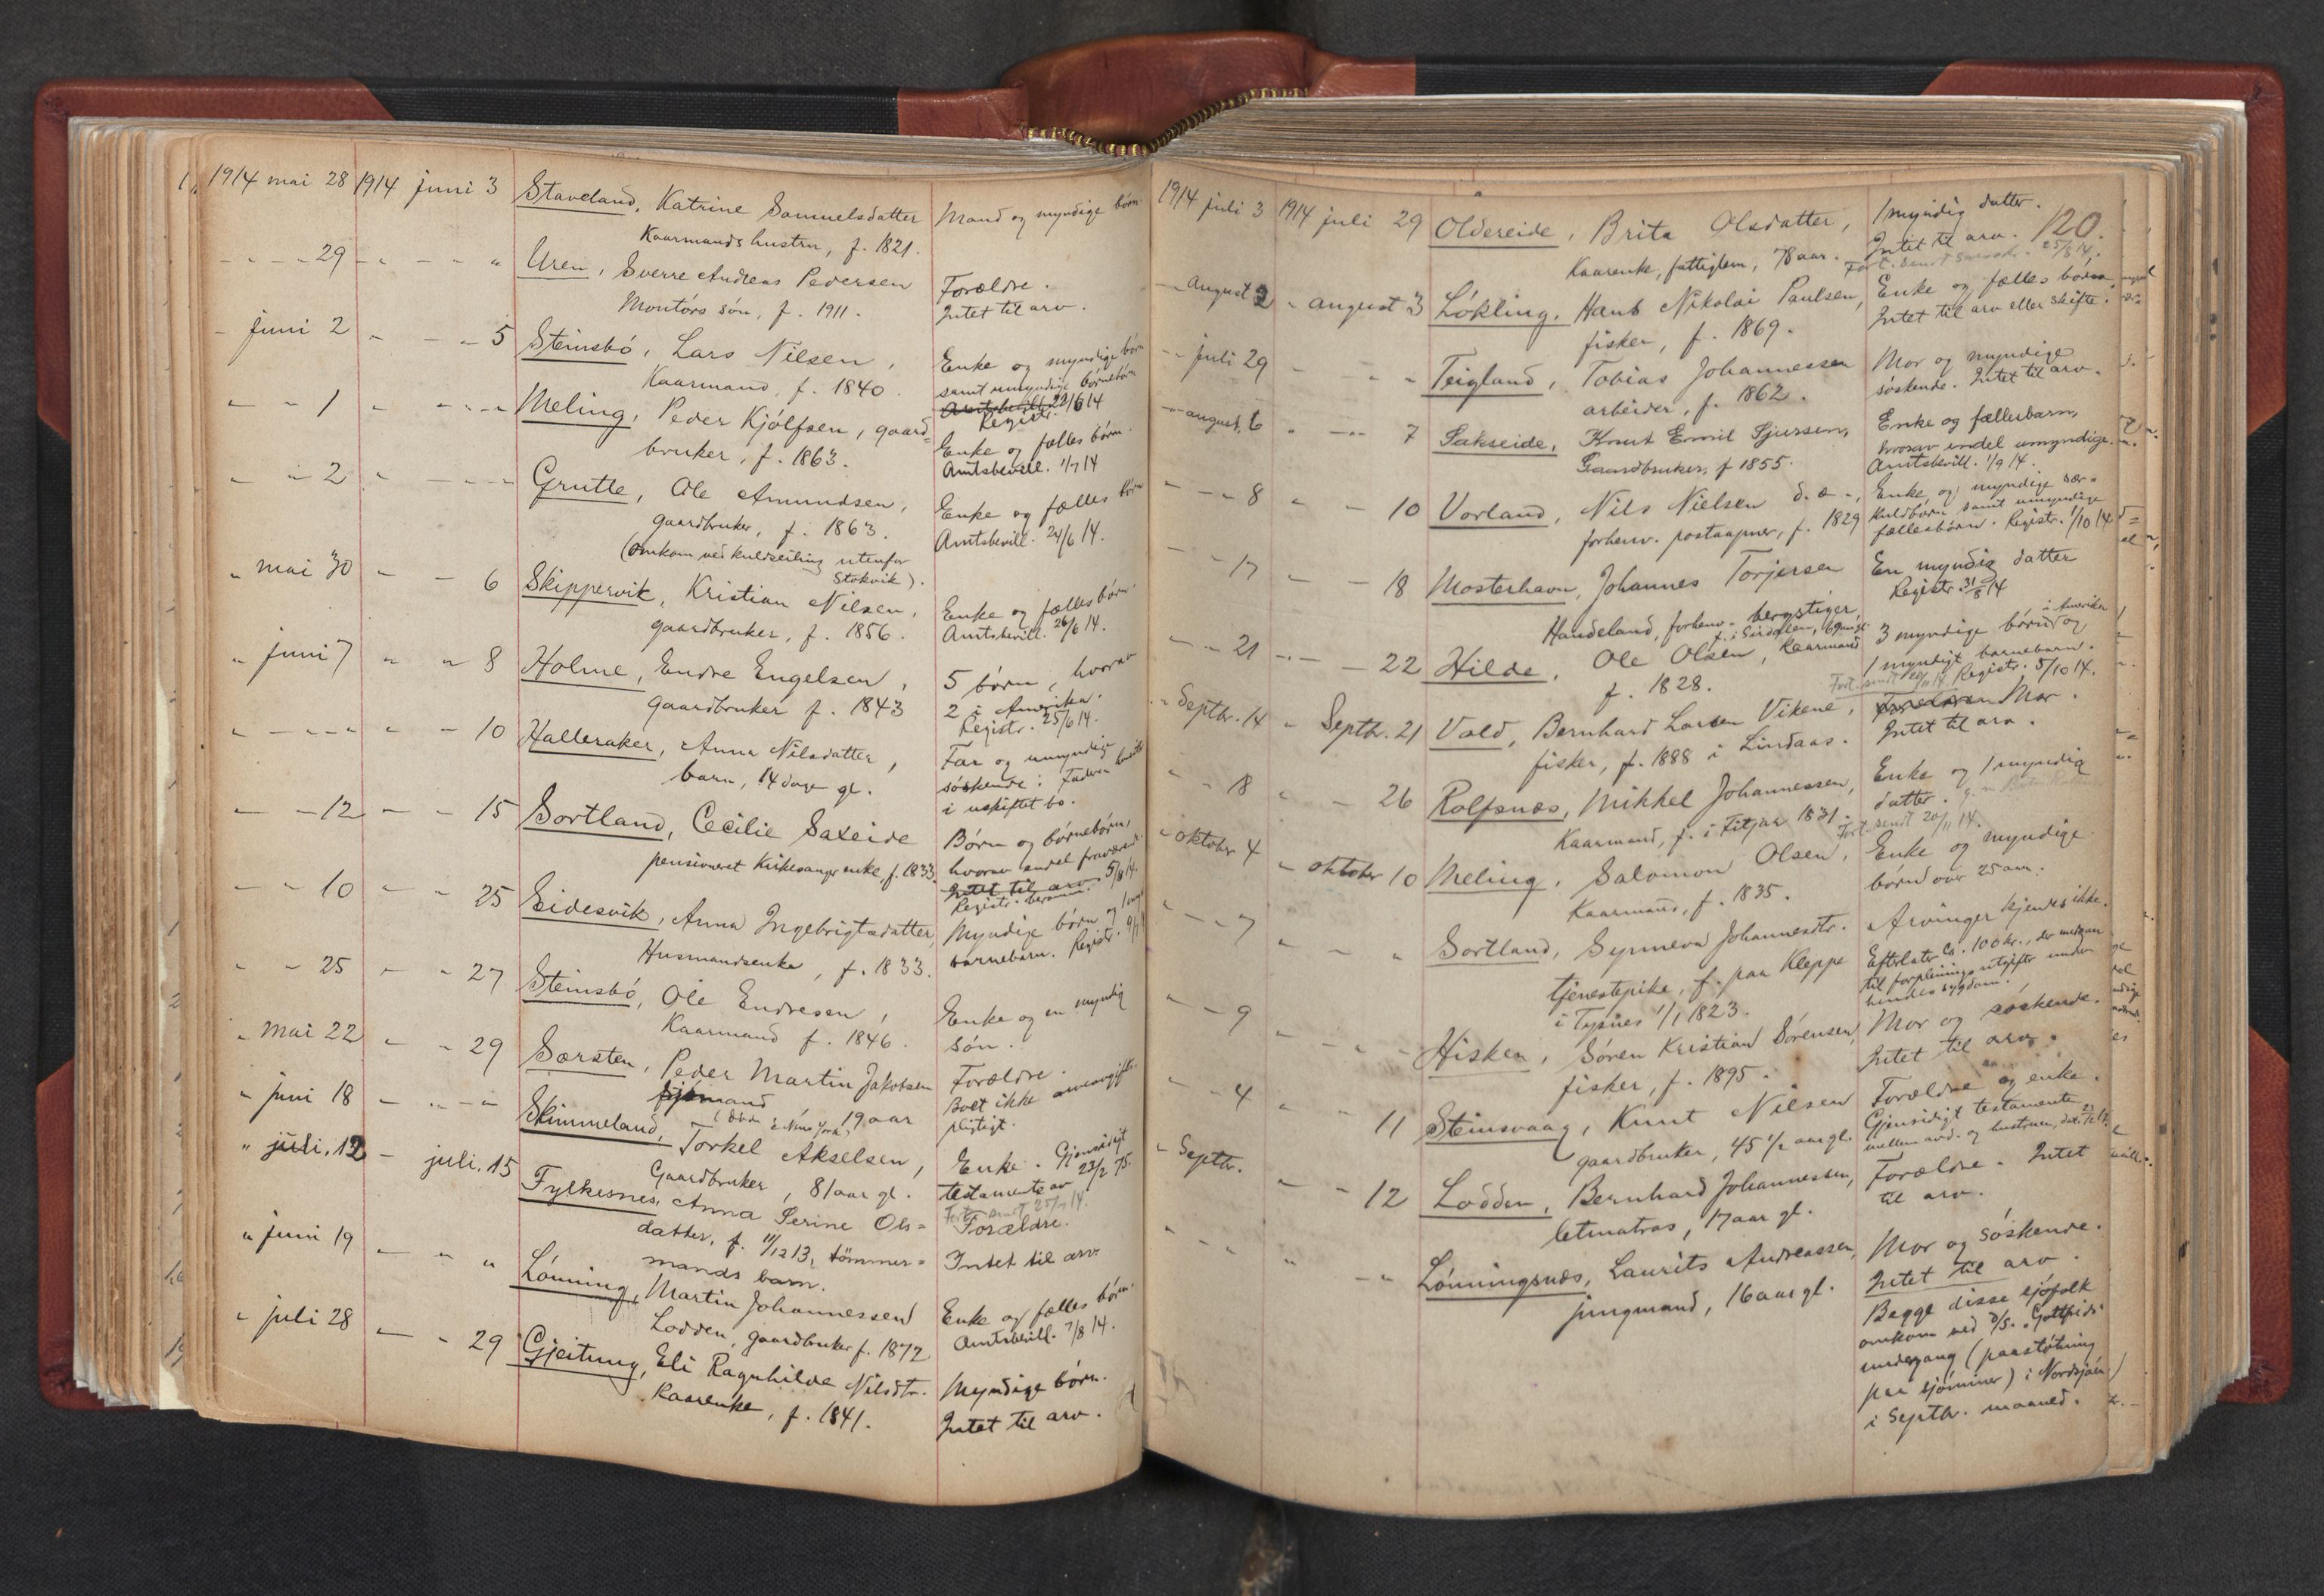 1914 mai 28 1914 juni 3 Staveland, Katrine Samuelsdatter Mand og myndige børn.
Kaarmands hustru, f. 1821.
- - - 29 - - - " Uren, Sverre Andreas Pedersen Forældre.
Montørs søn, f. 1911. Intet til arv.
- juni 2 - - - 5 Steinsbø, Lars Nilsen, Enke og myndige børn
Kaarmand, f. 1840. samt umyndige børnebørn
Amtsbevill. 22/6 14
Registr.
- - 1 - - - - Meling, Peder Kjølfsen, gaard=
bruker, f. 1863. Enke og fælles børn.
Amtsbevill. 1/7 14
- - 2 - - - - Grutle, Ole Amundsen, Enke og fælles børn
gaardbruker, f. 1863. Amtsbevill. 24/6 14.
(omkom ved kuldseiling utenfor
Stokvik).
" mai 30 - - 6 Skippervik, Kristian Nilsen, Enke og fælles børn.
gaardbruker, f. 1856. Amtsbevill. 26/6 14.
" juni 7 " " 8 Holme, Endre Engelsen, 5 børn, hvorav
gaardbruker f. 1843 2 i Amerika.
Registr. 25/6 14.
- - - - - - 10 Halleraker, Anna Nilsdatter, Far og umyndige
barn, 14 dage gl. søskende: Faderen
i uskiftet bo.
- - 12 - - 15 Sortland, Cecilie Saxeide Børn og børnebørn,
pensioneret Kirkesanger enke, f. 1833. hvorav endel fraværende.
Intet til arv. 5/8 14.
Registr.
- - 10 - - 25 Eidesvik, Anna Ingebrigtsdatter, Myndige børn og
Husmandsenke, f. 1833. barnebarn. Registr.
" " 25 - - 27 Steinsbø, Ole Endresen, Enke og en myndig
Kaarmand f. 1846. søn.
" mai 22 - - 29 Særsten, Peder Martin Jakobsen Forældre.
sjømand 19 aar Boet ikke arveavgifts-
pligtigt.
" juni 18 - " - " Skimmeland, Torkel Akselsen, Enke. Gjensidigt
Gaardbruker, 81 aar gl. testamente av 23/2 75.
" juli. 12 - juli. 15 Fylkesnes, Anna Serine Ols= Forældre.
datter, f. 11/12 13, tømmer= Intet til arv.
mands barn.
" juni 19 - " " Lønning, Martin Johannessen Enke og fælles børn.
Lodden, gaardbruker f. 1872 Amtsbevill. 7/8 14.
" juli 28 - - 29 Gjeitung, Eli Ragnhilde Nilsdtr. Myndige børn.
Kaarenke, f. 1841. Intet til arv.
1914 juli 3 1914 juli 29 Oldereide, Brita Olsdatter, 1 myndig datter. 120.
Kaarenke, fattiglem, 78 aar. Intet til arv.
- August 2 " august 3 Løkling, Hans Nikolai Paulsen, Enke og fælles børn,
fisker, f. 1869. Intet til arv eller skifte.
- - juli 29 - - - Teigland, Tobias Johannessen Mor og myndige
arbeider, f. 1862. søskende. Intet til arv.
- august. 6 " - - 7 Sakseide, Knut Emil Sjursen, Enke og fællesbarn,
Gaardbruker, f 1855. hvorav endel umyndige.
Amtsbevill. 1/9 14.
- - 8 " - 10 Vorland, Nils Nielsen d. æ -, Enke og myndige sær=
forhenv. postaapner, f. 1829 kuldbørn samt umyndige
fællesbørn. Registr. 1/10 14
- - 17 - - 18 Mosterhavn, Johannes Torjersen En myndig datter
Handeland, forhenv. bergstiger, Registr. 31/8 14
- - 21 - - - 22 Hilde, Ole Olsen, Kaarmand 3 myndige børn i Amerika og
f. 1828. 1 myndigt barnebarn.
Registr. 5/10 14.
- Septbr. 14 " Septbr. 21 Vold, Bernhard Larsen Vikene, Forældre Mor.
fisker, f. 1888 i Lindaas. Intet til arv.
" - 18 " - 26 Rolfsnæs, Mikkel Johannessen, Enke og 1 myndig
Kaarmand, f. i Fitjar 1831. datter.
Fort. sendt 20/11 14.
- oktober 4 " oktober 10 Meling, Salomon Olsen, Enke og myndige
Kaarmand, f. 1835. børn over 25 aar.
- - 7 " " " Sortland, Synneva Johannesdtr. Arvinger kjendes ikke.
tjenestepike, f. paa Kleppe Efterlater ca. 100 kr., der medgaar
i Tysnes 1/1 1823. til forpleinings utgifter under
hendes sygdom.
- - 9 " - - - Hisken, Søren Kristian Sørensen, Mor og søskende.
fisker, f. 1895. Intet til arv.
- - 4 " - 11 Steinsvaag, Knut Nilsen Forældre og enke.
gaardbruker, 45 1/2 aar gl. Gjensidigt testamente
mellem avd. og hustruen, dat.
- Septbr. - - 12 Lodden, Bernhard Johannessen, Forældre. Intet
letmatros, 17 aar gl. til arv.
" - - " - " Lønningsnæs, Laurits Andreassen, Mor og søskende.
jungmand, 16 aar gl. Intet til arv.
Begge disse sjøfolk
omkom ved D/S. "Gottfrid"s
undergang (paastøtning
paa sjøminer) i Nordsjøen
i Septbr. maaned.